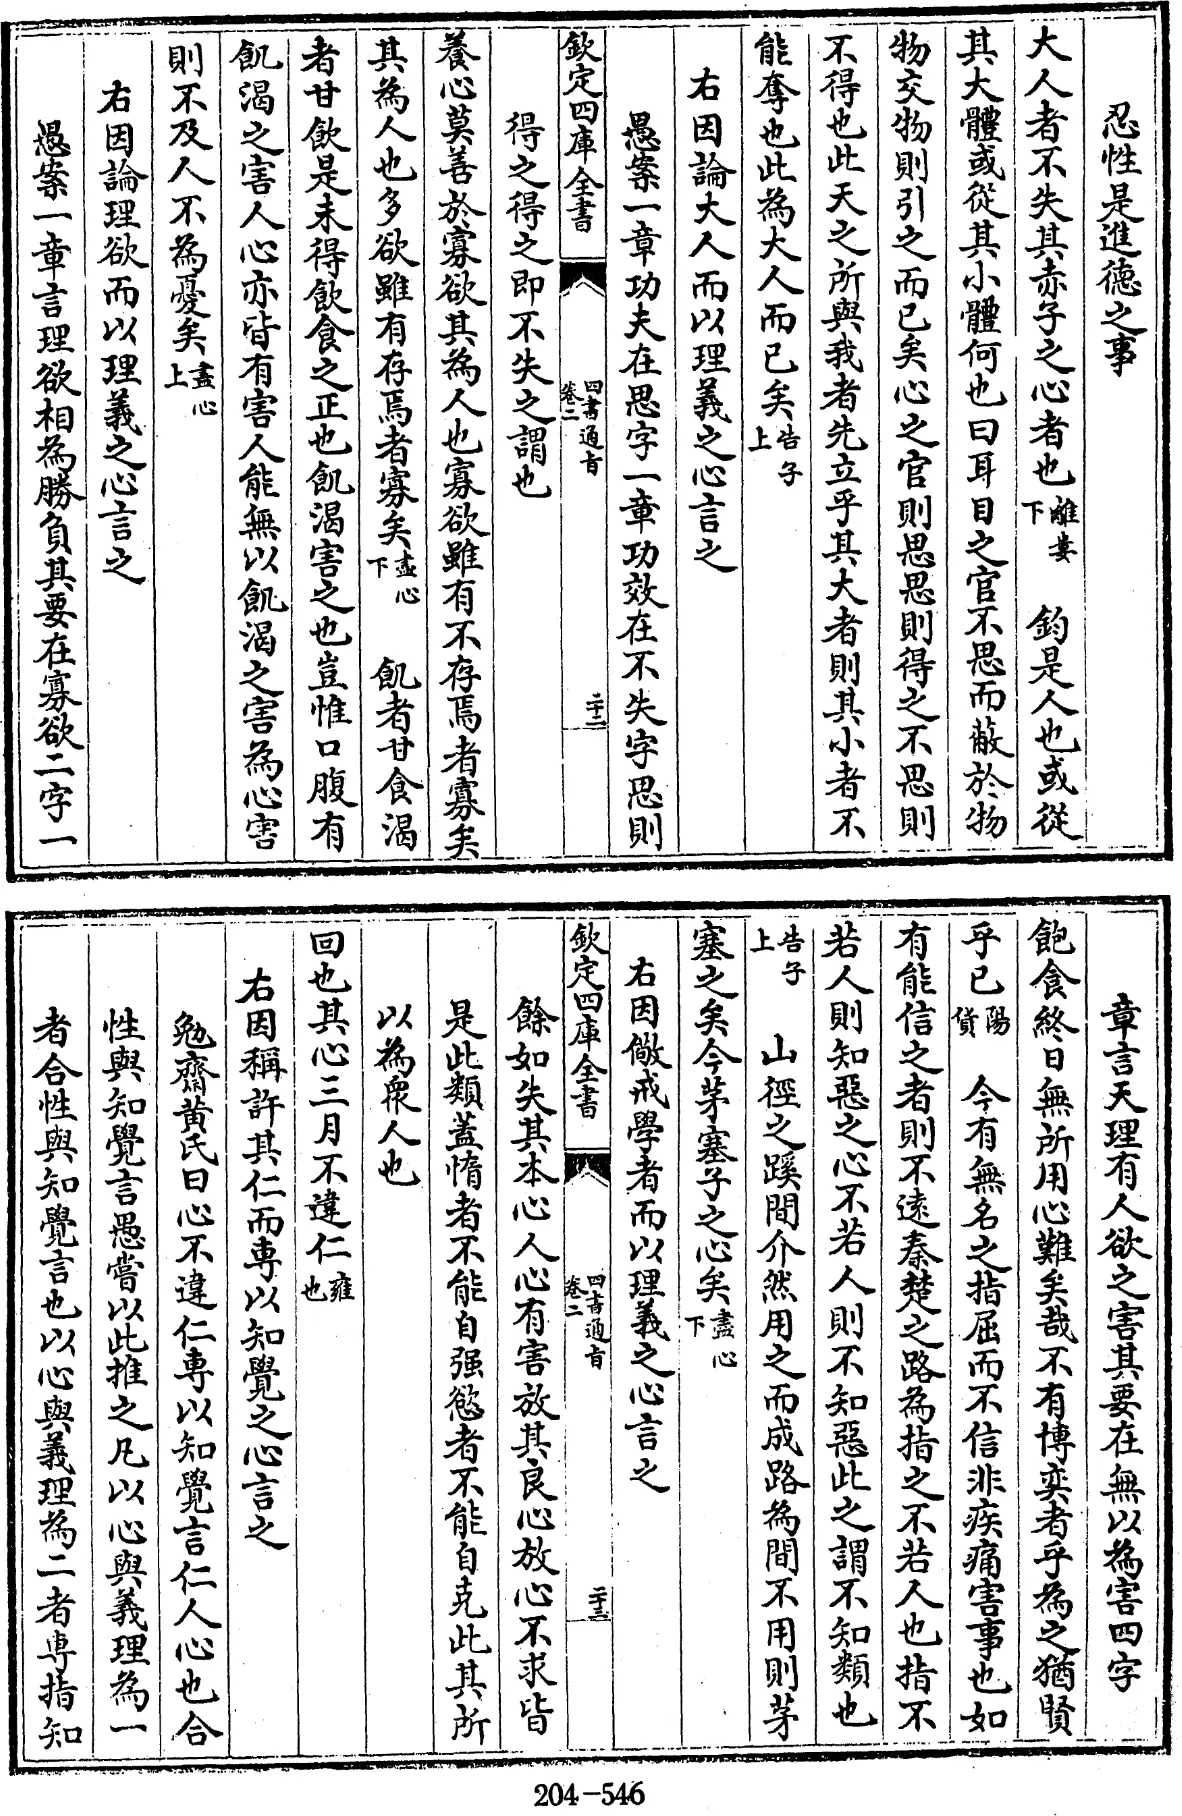 忍性是進德之事
大人者不失其赤子之心者也離婁下　鈞是人也或從
其大體或從其小體何也曰耳目之官不思而蔽於物
物交物則引之而已矣心之官則思思則得之不思則
不得也此天之所與我者先立乎其大者則其小者不
能奪也此為大人而已矣告子上
右因論大人而以理義之心言之
愚案一章功夫在思字一章功效在不失字思則
欽定四庫全書　四書通旨卷二　二十二
得之得之即不失之謂也
養心莫善於寡欲其為人也寡欲雖有不存焉者寡矣
其為人也多欲雖有存焉者寡矣盡心下　飢者甘食渴
者甘飲是未得飲食之正也飢渴害之也豈惟口腹有
飢渴之害人心亦皆有害人能無以飢渴之害為心害
則不及人不為憂矣盡心上
右因論理欲而以理義之心言之
愚案一章言理欲相為勝負其要在寡欲二字一
章言天理有人欲之害其要在無以為害四字
飽食終日無所用心難矣哉不有博奕者乎為之猶賢
乎已陽貨　今有無名之指屈而不信非疾痛害事也如
有能信之者則不遠秦楚之路為指之不若人也指不
若人則知惡之心不若人則不知惡此之謂不知類也
告子上　山徑之蹊間介然用之而成路為間不用則茅
塞之矣今茅塞子之心矣盡心下
右因儆戒學者而以理義之心言之
欽定四庫全書　四書通旨卷二　二十三
餘如失其本心人心有害放其良心放心不求皆
是此類蓋惰者不能自强慾者不能自克此其所
以為衆人也
回也其心三月不違仁雍也
右因稱許其仁而專以知覺之心言之
勉齋黄氏曰心不違仁專以知覺言仁人心也合
性與知覺言愚嘗以此推之凡以心與義理為一
者合性與知覺言也以心與義理為二者專指知
204-546